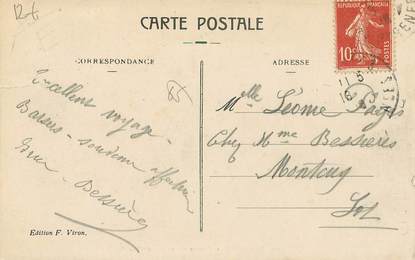 CARTE POSTALE
CORRESPONDANCE
ADRESSE
REPUBLIQUE FRANÇAISE
10c
POSTES
85
Excellent voyage -
Baisers - souvenir affectueux
Bessières
Melle Léonie
Chez Mme Bessières
Montcuq
Lot
Edition F. Viron.